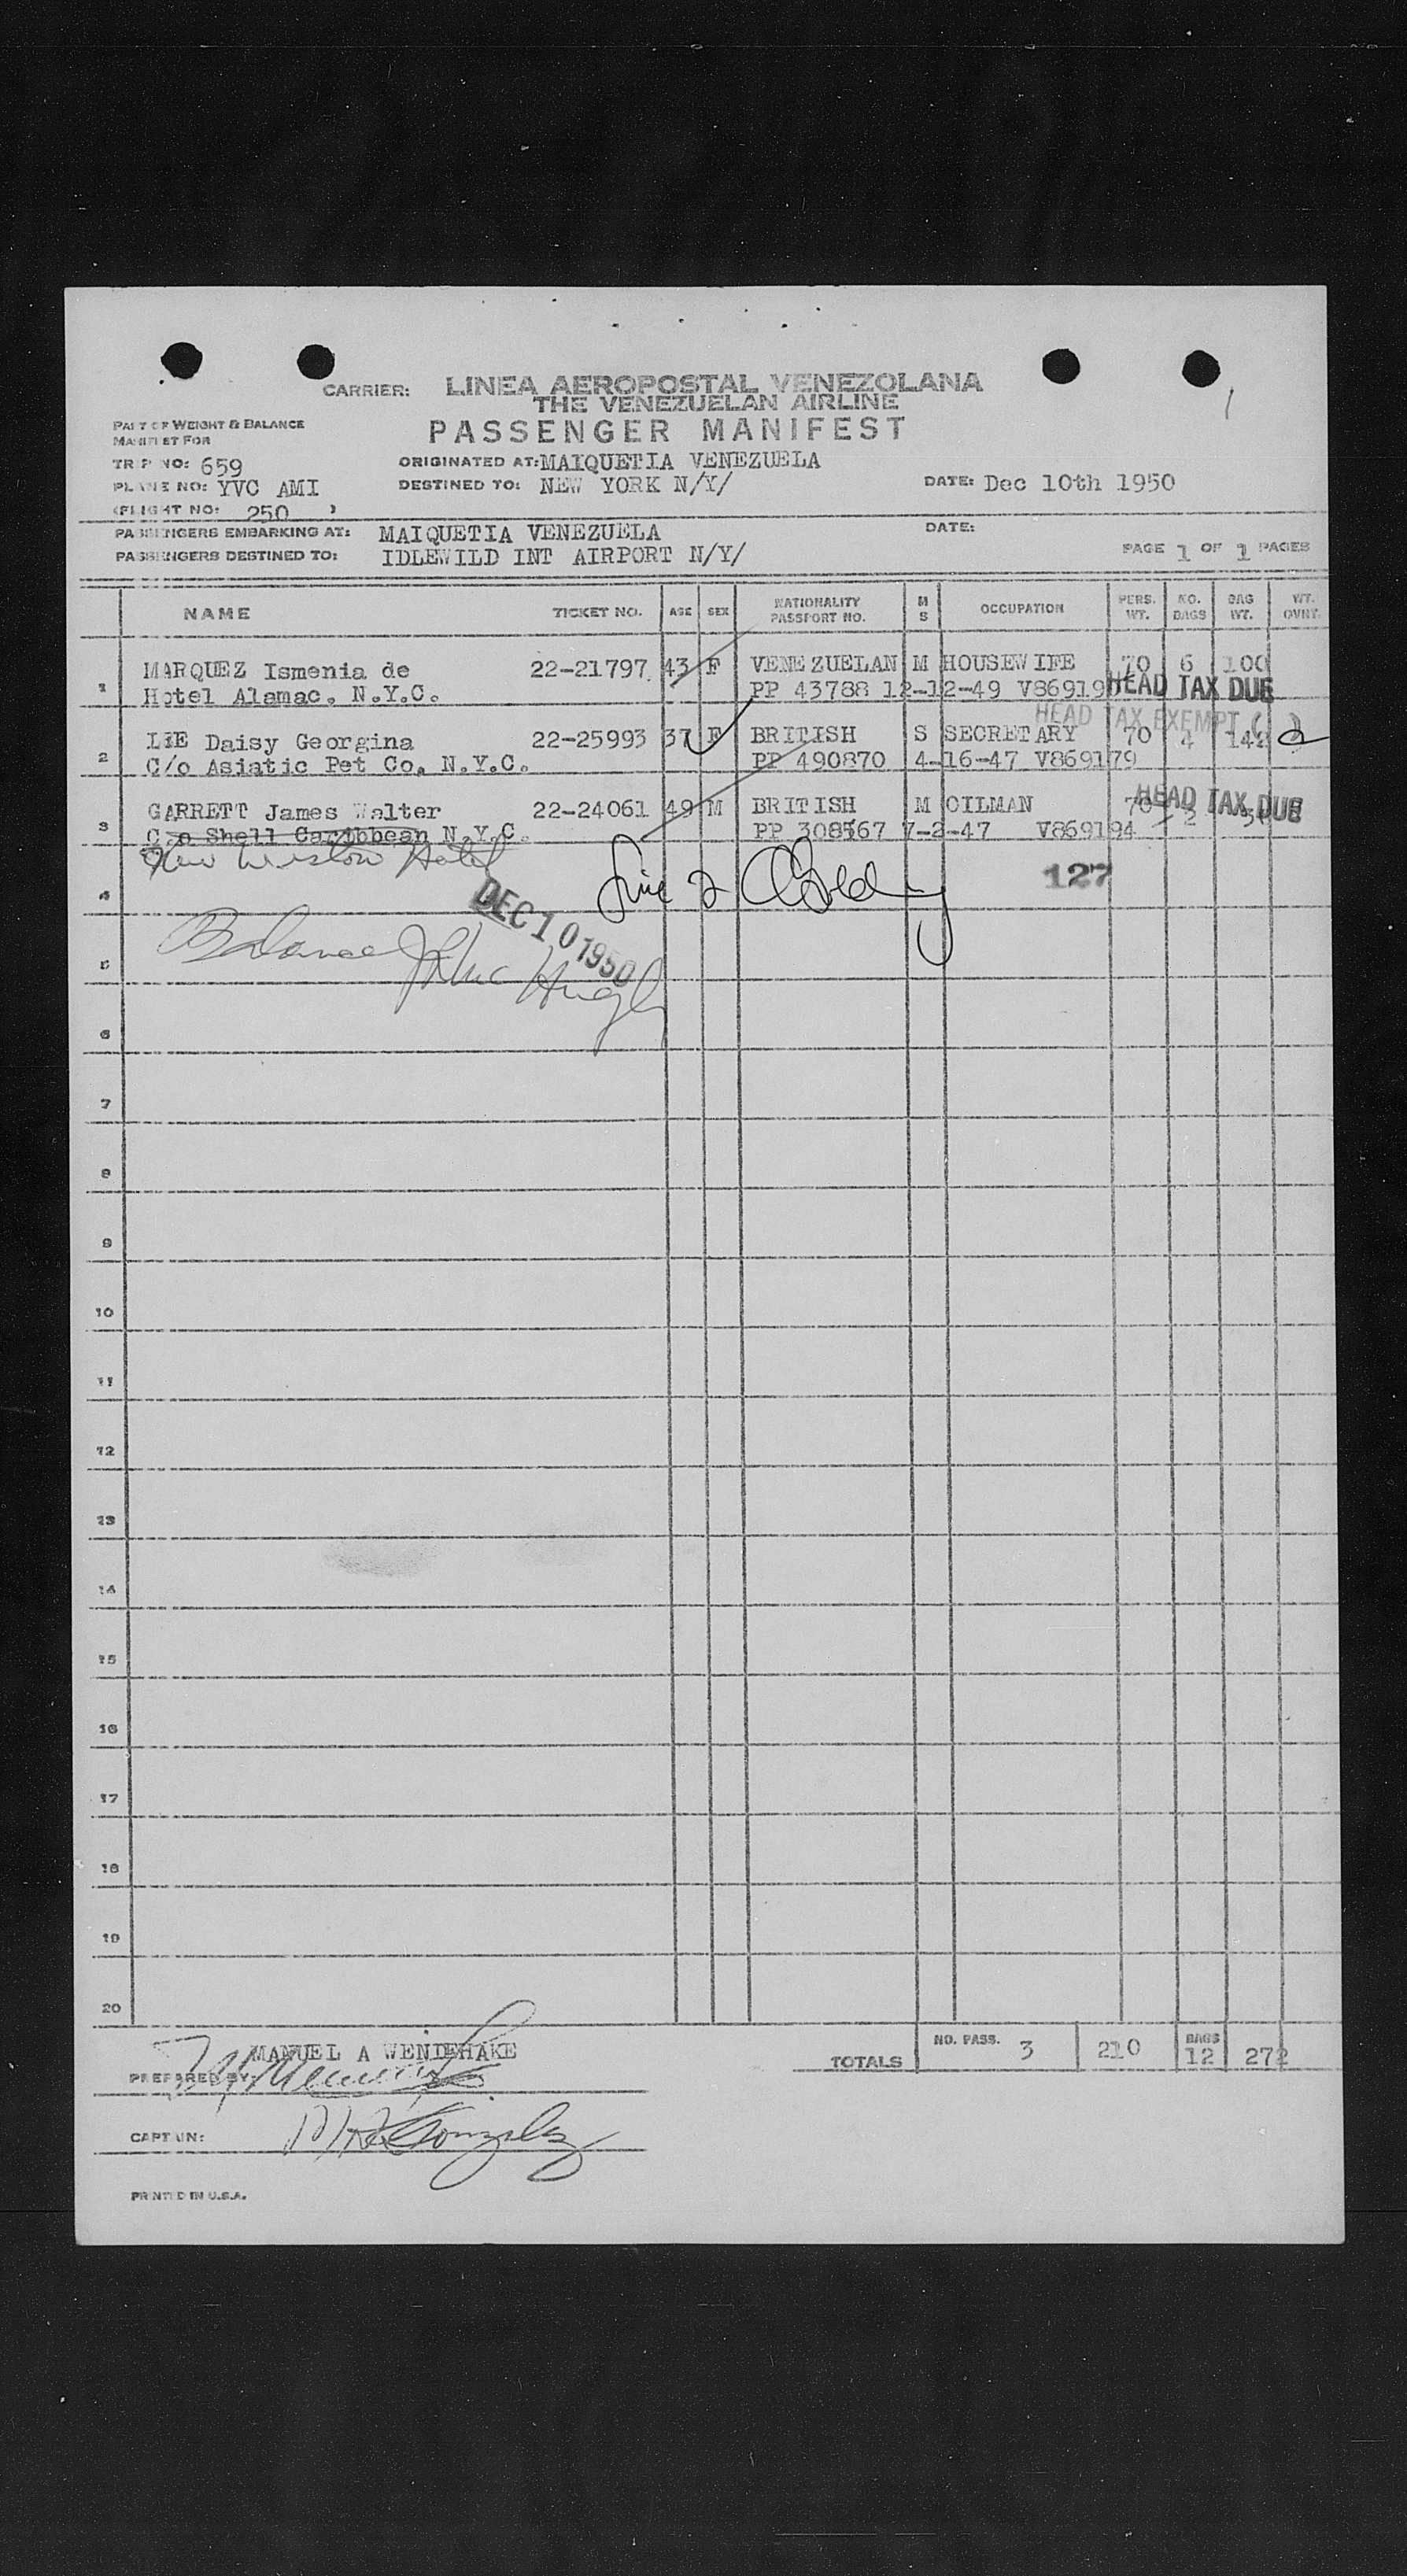 CARRIER: LINEA AEROPOSTAL VENEZOLANA
THE VENEZUELAN AIRLINE
PART OF WEIGHT & BALANCE
MANIFEST FOR
PASSENGER MANIFEST
TRIP NO: 659
ORIGINATED AT: MAIQUETIA VENEZUELA
PLANE NO: YVC AMI
DESTINED TO: NEW YORK N/Y/
DATE: Dec 10th 1950
(FLIGHT NO: 250 )
PASSENGERS EMBARKING AT: MAIQUETIA VENEZUELA
DATE:
PASSENGERS DESTINED TO: IDLEWILD INT AIRPORT N/Y/
PAGE 1 OF 1 PAGES
NAME TICKET NO. AGE SEX NATIONALITY PASSPORT NO. M S OCCUPATION PERS. WT. NO. BAGS BAG WT. WT. OVNT.
MARQUEZ Ismenia de 22-21797 43 F VENEZUELAN M HOUSEWIFE 70 6 100
1 Hotel Alamac, N.Y.C. PP 43788 12-12-49 HEAD TAX DUE
HEAD TAX EXEMPT ( )
LEE Daisy Georgina 22-25993 37 F BRITISH S SECRETARY 70 4 142
2 C/o Asiatic Pet Co, N.Y.C. PP 490870 4-16-47 V869179
GARRETT James Walter 22-24061 49 M BRITISH M OILMAN 70 2 HEAD TAX DUE
3 C/o Shell Caribbean N.Y.C. 7-2-47 V869194
New Weston Hotel
4 Line 2 127
DEC 10 1950
5 Balance
6
7
8
9
10
11
12
13
14
15
16
17
18
19
20
MANUEL A WENDEHAKE
PREPARED BY:
TOTALS NO. PASS. 3 210 BAGS 12 272
CAPTAIN: Gonzalez
PRINTED IN U.S.A.